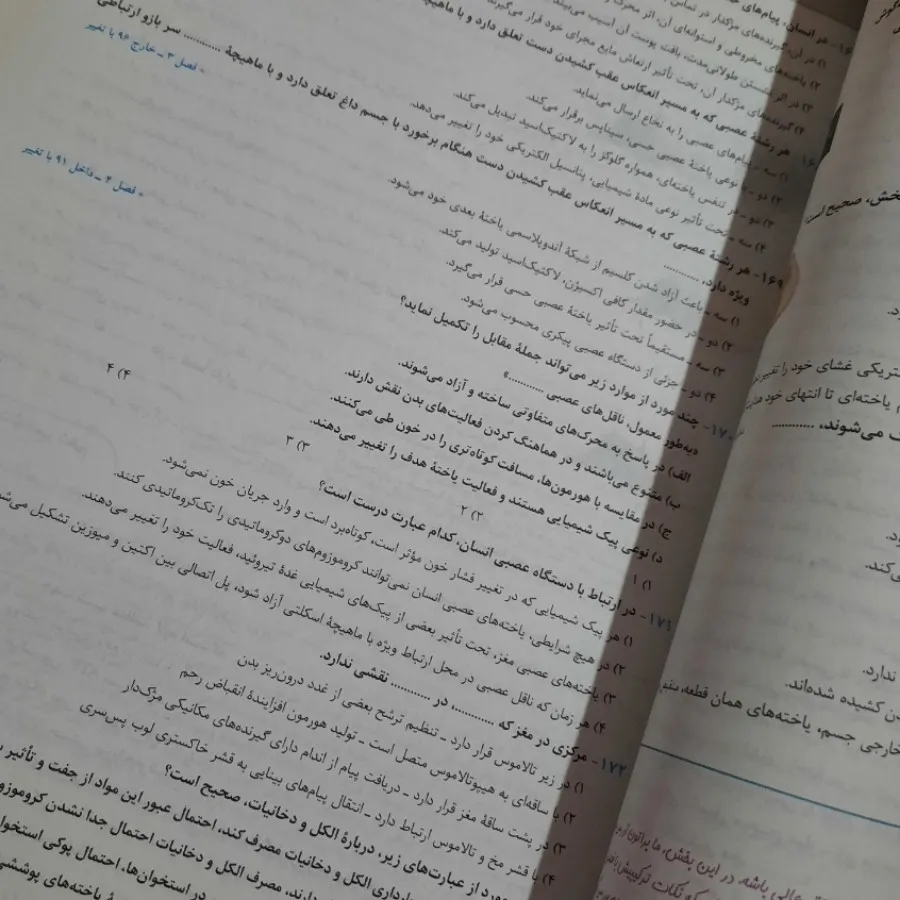 ۱) در آن، گیرنده‌های مژکدار در تماس
۲) یاخته‌های مخروطی و استوانه‌ای آن، اثر محرک
۳) در اثر نشستن طولانی‌مدت، بافت پوست آن آسیب می‌بیند
۴) گیرنده‌های مژکدار آن، تحت تأثیر ارتعاش مایع مجرای خود قرار می‌گیرند
هر رشتهٔ عصبی که به مسیر انعکاس عقب کشیدن دست تعلق دارد و با ماهیچهٔ
۱) سه - پیام‌های عصبی را به نخاع ارسال می‌نماید.
۲) دو - با نوعی یاختهٔ عصبی حسی، سیناپس برقرار می‌کند.
۳) دو - در تنفس یاخته‌ای، همواره گلوکز را به لاکتیک‌اسید تبدیل می‌کند.
۴) سه - تحت تأثیر نوعی مادهٔ شیمیایی، پتانسیل الکتریکی خود را تغییر می‌دهد.
۱۶۹- هر رشتهٔ عصبی که به مسیر انعکاس عقب کشیدن دست هنگام برخورد با جسم داغ تعلق دارد و با ماهیچهٔ ........... سر بازو ارتباطی
ویژه دارد، ...........
• فصل ۳ ـ خارج ۹۶ با تغییر
۱) سه ـ باعث آزاد شدن کلسیم از شبکهٔ آندوپلاسمی یاختهٔ بعدی خود می‌شود.
۲) دو ـ در حضور مقدار کافی اکسیژن، لاکتیک‌اسید تولید می‌کند.
۳) سه ـ مستقیماً تحت تأثیر یاختهٔ عصبی حسی قرار می‌گیرد.
۴) دو ـ جزئی از دستگاه عصبی پیکری محسوب می‌شود.
۱۷۰- چند مورد از موارد زیر می‌تواند جملهٔ مقابل را تکمیل نماید؟
• فصل ۴ ـ داخل ۹۱ با تغییر
«به‌طور معمول، ناقل‌های عصبی ...........»
الف) در پاسخ به محرک‌های متفاوتی ساخته و آزاد می‌شوند.
ب) متنوع می‌باشند و در هماهنگ کردن فعالیت‌های بدن نقش دارند.
ج) در مقایسه با هورمون‌ها، مسافت کوتاه‌تری را در خون طی می‌کنند.
د) نوعی پیک شیمیایی هستند و فعالیت یاختهٔ هدف را تغییر می‌دهند.
۱) ۱ ۲) ۲ ۳) ۳ ۴) ۴
۱۷۱- در ارتباط با دستگاه عصبی انسان، کدام عبارت درست است؟
۱) هر پیک شیمیایی که در تغییر فشار خون مؤثر است، کوتاه‌برد است و وارد جریان خون نمی‌شود.
۲) در هیچ شرایطی، یاخته‌های عصبی انسان نمی‌توانند کروموزوم‌های دوکروماتیدی را تک‌کروماتیدی کنند.
۳) یاخته‌های عصبی مغز، تحت تأثیر بعضی از پیک‌های شیمیایی غدهٔ تیروئید، فعالیت خود را تغییر می‌دهند.
۴) هر زمان که ناقل عصبی در محل ارتباط ویژه با ماهیچهٔ اسکلتی آزاد شود، پل اتصالی بین اکتین و میوزین تشکیل می‌شود
۱۷۲- مرکزی در مغز که ...........، در ........... نقشی ندارد.
۱) در زیر تالاموس قرار دارد ـ تنظیم ترشح بعضی از غدد درون‌ریز بدن
۲) با ساقه‌ای به هیپوتالاموس متصل است ـ تولید هورمون افزایندهٔ انقباض رحم
۳) در پشت ساقهٔ مغز قرار دارد ـ دریافت پیام از اندام دارای گیرنده‌های مکانیکی مژک‌دار
۴) با قشر مخ و تالاموس ارتباط دارد ـ انتقال پیام‌های بینایی به قشر خاکستری لوب پس‌سری
ورد از عبارت‌های زیر، دربارهٔ الکل و دخانیات، صحیح است؟
بارداری الکل و دخانیات مصرف کند، احتمال عبور این مواد از جفت و تأثیر
دارند، مصرف الکل و دخانیات احتمال جدا نشدن کروموزوم
در استخوان‌ها، احتمال پوکی استخوان
یاخته‌های پوششی
خش، صحیح است
تریکی غشای خود را تغییر
یاخته‌ای تا انتهای خود هدایت
ف می‌شوند، ...........
کند.
ندارد.
دن کشیده شده‌اند.
خارجی جسم، یاخته‌های همان قطعه،
عالی باشه. در این بخش، ما براتون
که نکات ترکیبیش